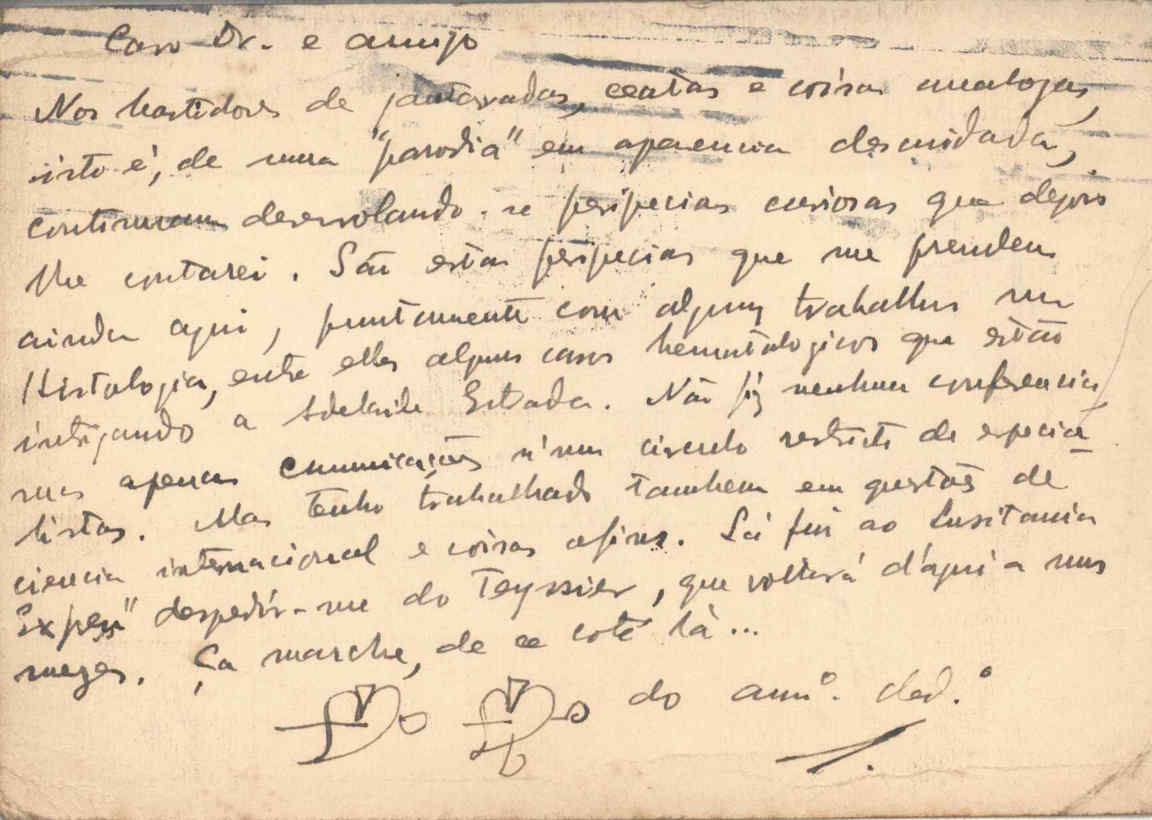 Caro Dr. e amigo
Nos bastidores de jantaradas, ceatas e coisas analogas,
isto é, de uma "parodia" em aparencia descuidada,
continuam desenrolando-se peripecias curiosas que depois
lhe contarei. São estas peripecias que me prendem
ainda aqui, juntamente com alguns trabalhos na
Histologia, entre elles alguns casos hematologicos que estão
intrigando a Adelaide Estrada. Não fiz nenhuma conferencia,
mas apenas comunicações n'um circulo restricto de especia-
listas. Mas tenho trabalhado tambem em questões de
ciencia internacional e coisas afins. Lá fui ao Lusitania
Expess" despedir-me do Teyssier, que voltará d'aqui a uns
mezes. Ça marche, de ce coté là...
do amº. ded.º